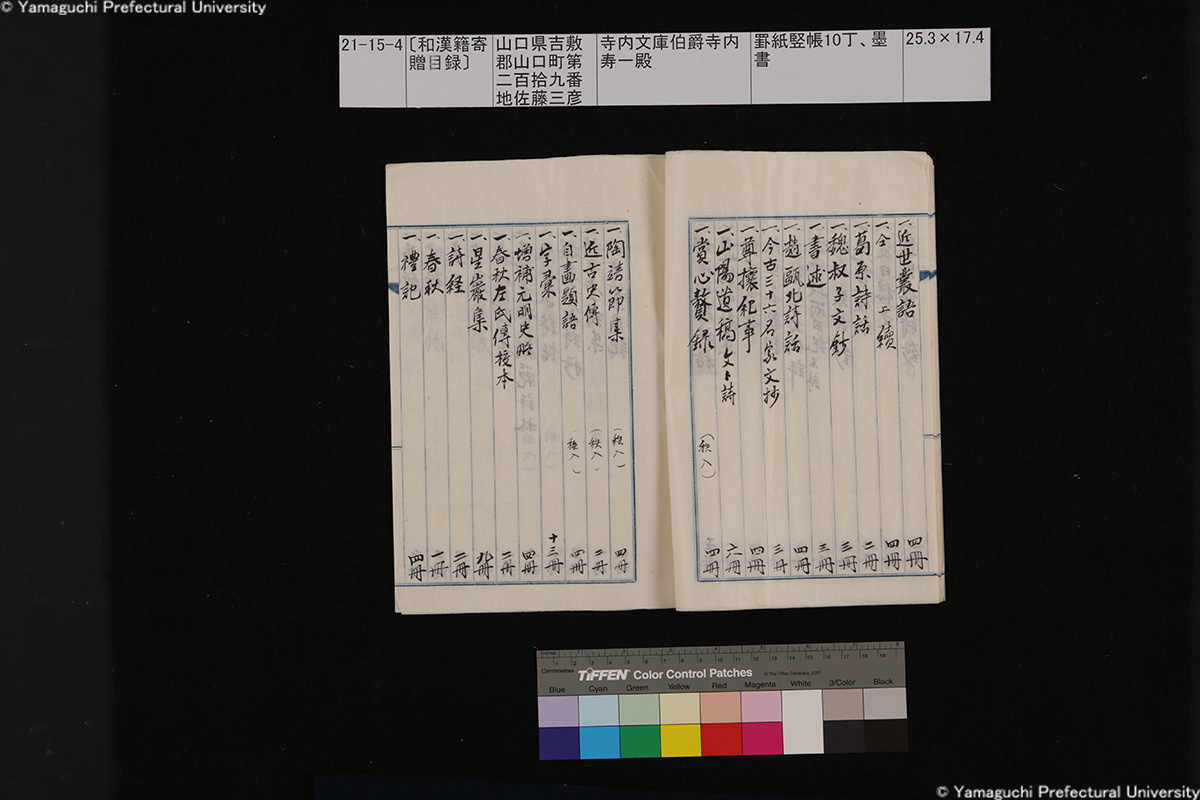 © Yamaguchi Prefectural University
21-15-4
〔和漢籍寄
贈目録〕
山口県吉敷
郡山口町第
二百拾九番
地佐藤三彦
寺内文庫伯爵寺内
寿一殿
罫紙竪帳10丁、墨
書
25.3×17.4
一、近世叢語 四冊
一、仝 上續 四冊
一、葛原詩話 二冊
一、魏叔子文鈔 三冊
一、書述 三冊
一、趙甌北詩話 四冊
一、今古三十六名家文抄 三冊
一、尊攘紀事 四冊
一、山陽遺稿 文卜詩 六冊
一、賞心贅録 (秩入) 四冊
一、陶靖節集 (秩入) 四冊
一、近古史傳 (秩入) 二冊
一、自畫題語 (秩入) 四冊
一、字彙 十三冊
一、増補元明史略 四冊
一、春秋左氏傳校本 二冊
一、星巖集 九冊
一、詩経 二冊
一、春秋 一冊
一、禮記 四冊
Centimetres
TIFFEN Color Control Patches
© The Tiffen Company, 2007
Blue Cyan Green Yellow Red Magenta White 3/Color Black
© Yamaguchi Prefectural University